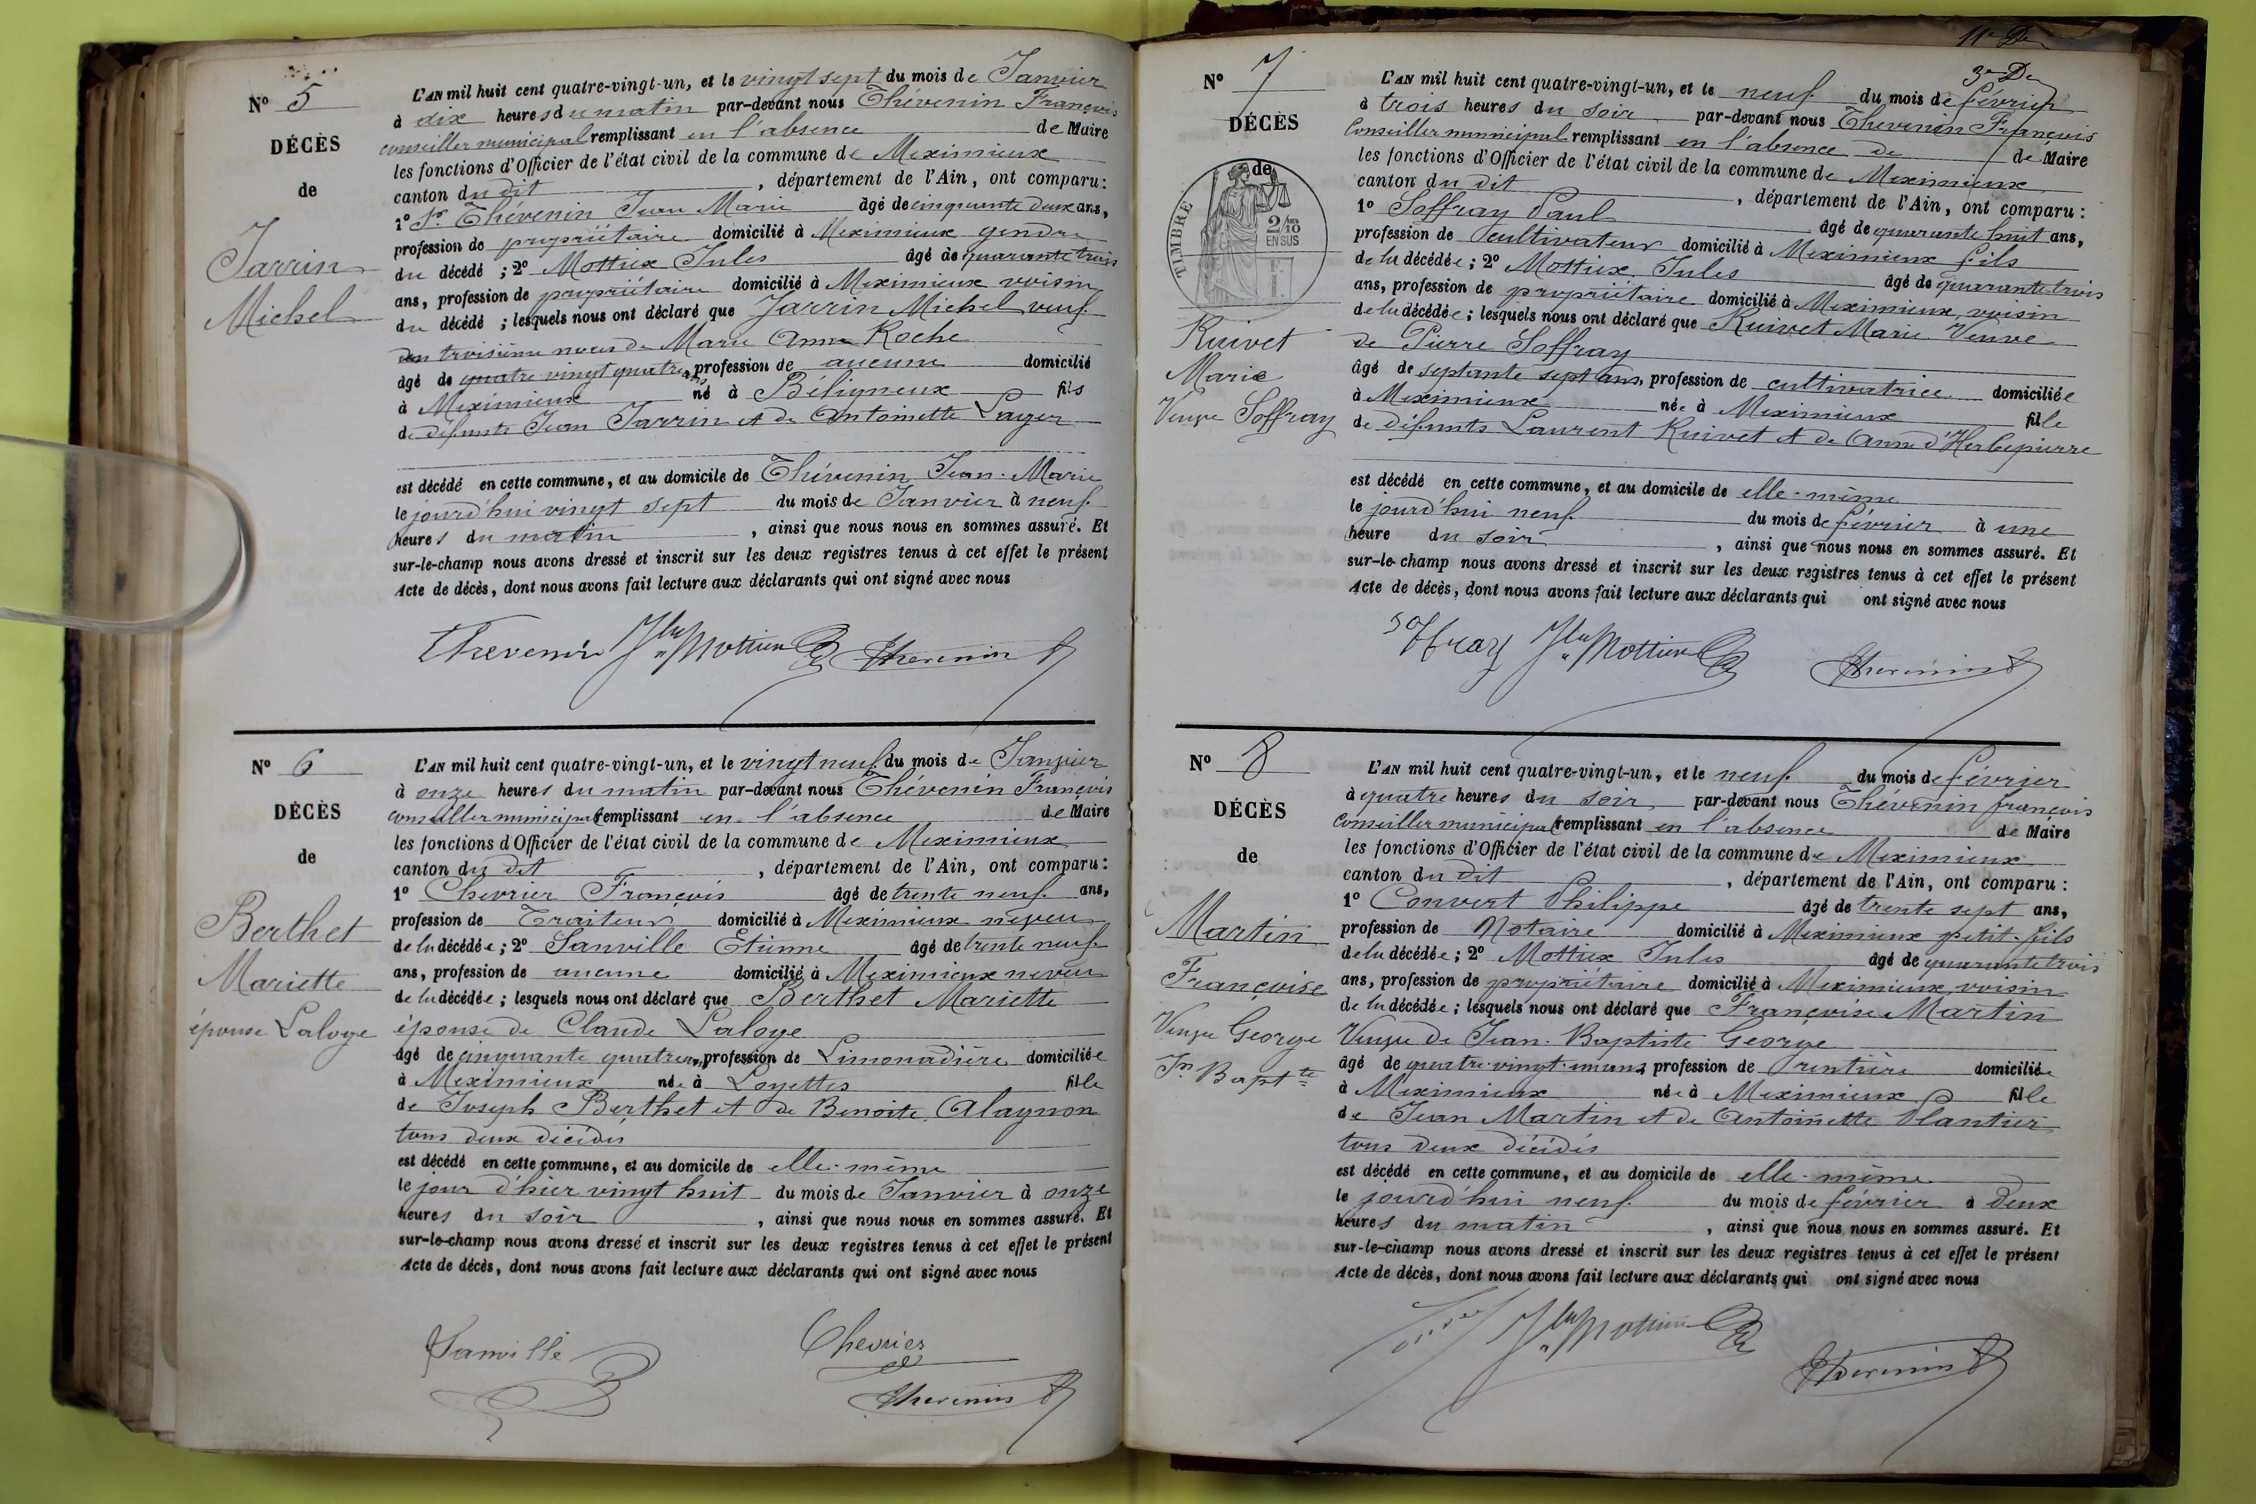 N° 5
DÉCÈS
de
Jarrin
Michel
L'AN mil huit cent quatre-vingt-un, et le vingt sept du mois de Janvier
à dix heures du matin par-devant nous Thévenin François
conseiller municipal remplissant en l'absence de Maire
les fonctions d'Officier de l'état civil de la commune de Meximieux
canton du dit, département de l'Ain, ont comparu:
1° Sr. Thévenin Jean Marie âgé de cinquante deux ans,
profession de propriétaire domicilié à Meximieux gendre
du décédé ; 2° Mottux Jules âgé de quarante trois
ans, profession de propriétaire domicilié à Meximieux voisin
du décédé ; lesquels nous ont déclaré que Jarrin Michel veuf
en troisième noces de Marie Anne Roche
âgé de quatre vingt quatre ans, profession de aucune domicilié
à Meximieux né à Béligneux fils
de défunts Jean Jarrin et de Antoinette Layer
est décédé en cette commune, et au domicile de Thévenin Jean-Marie
le jourd'hui vingt sept du mois de Janvier à neuf
heures du matin, ainsi que nous nous en sommes assuré. Et
sur-le-champ nous avons dressé et inscrit sur les deux registres tenus à cet effet le présent
Acte de décès, dont nous avons fait lecture aux déclarants qui ont signé avec nous
Thevenin Jles Mottux Thevenin
N° 6
DÉCÈS
de
Berthet
Mariette
épouse Laloge
L'AN mil huit cent quatre-vingt-un, et le vingt neuf du mois de Janvier
à onze heures du matin par-devant nous Thévenin François
conseiller municipal remplissant en l'absence de Maire
les fonctions d'Officier de l'état civil de la commune de Meximieux
canton du dit, département de l'Ain, ont comparu:
1° Chevrier François âgé de trente neuf ans,
profession de Traiteur domicilié à Meximieux neveu
de la décédée ; 2° Janville Etienne âgé de trente neuf
ans, profession de aucune domicilié à Meximieux neveu
de la décédée ; lesquels nous ont déclaré que Berthet Mariette
épouse de Claude Laloge
âgé de cinquante quatre ans, profession de Limonadière domiciliée
à Meximieux née à Loyettes fille
de Joseph Berthet et de Benoite Alagnon
tous deux décédés
est décédé en cette commune, et au domicile de elle-même
le jour d'hier vingt huit du mois de Janvier à onze
heures du soir, ainsi que nous nous en sommes assuré. Et
sur-le-champ nous avons dressé et inscrit sur les deux registres tenus à cet effet le présent
Acte de décès, dont nous avons fait lecture aux déclarants qui ont signé avec nous
Janville Chevrier
Thevenin
11e De
3e De
N° 7
DÉCÈS
de
TIMBRE
2/10
EN SUS
Kuivet
Marie
Veuve Soffray
L'AN mil huit cent quatre-vingt-un, et le neuf du mois de février
à trois heures du soir par-devant nous Thevenin François
Conseiller municipal remplissant en l'absence de de Maire
les fonctions d'Officier de l'état civil de la commune de Meximieux
canton du dit, département de l'Ain, ont comparu :
1° Soffray Paul âgé de quarante huit ans,
profession de cultivateur domicilié à Meximieux fils
de la décédée ; 2° Mottux Jules âgé de quarante-trois
ans, profession de propriétaire domicilié à Meximieux voisin
de la décédée ; lesquels nous ont déclaré que Kuivet Marie Veuve
de Pierre Soffray
âgé de septante sept ans, profession de cultivatrice domiciliée
à Meximieux née à Meximieux fille
de défunts Laurent Kuivet et de Anne d'Herbepierre
est décédé en cette commune, et au domicile de elle-même
le jourd'hui neuf du mois de février à une
heure du soir, ainsi que nous nous en sommes assuré. Et
sur-le-champ nous avons dressé et inscrit sur les deux registres tenus à cet effet le présent
Acte de décès, dont nous avons fait lecture aux déclarants qui ont signé avec nous
Soffray Jles Mottux Thevenin
N° 8
DÉCÈS
de
Martin
Françoise
Veuve George
Jn Baptte
L'AN mil huit cent quatre-vingt-un, et le neuf du mois de février
à quatre heures du soir par-devant nous Thévenin françois
Conseiller municipal remplissant en l'absence de Maire
les fonctions d'Officier de l'état civil de la commune de Meximieux
canton du dit, département de l'Ain, ont comparu :
1° Convert Philippe âgé de trente sept ans,
profession de Notaire domicilié à Meximieux petit-fils
de la décédée ; 2° Mottux Jules âgé de quarante trois
ans, profession de propriétaire domicilié à Meximieux voisin
de la décédée ; lesquels nous ont déclaré que Françoise Martin
Veuve de Jean-Baptiste George
âgé de quatre-vingt-un ans, profession de rentière domiciliée
à Meximieux née à Meximieux fille
de Jean Martin et de Antoinette Plantier
tous deux décédés
est décédé en cette commune, et au domicile de elle-même
le jourd'hui neuf du mois de février à deux
heures du matin, ainsi que nous nous en sommes assuré. Et
sur-le-champ nous avons dressé et inscrit sur les deux registres tenus à cet effet le présent
Acte de décès, dont nous avons fait lecture aux déclarants qui ont signé avec nous
Jles Mottux Thevenin